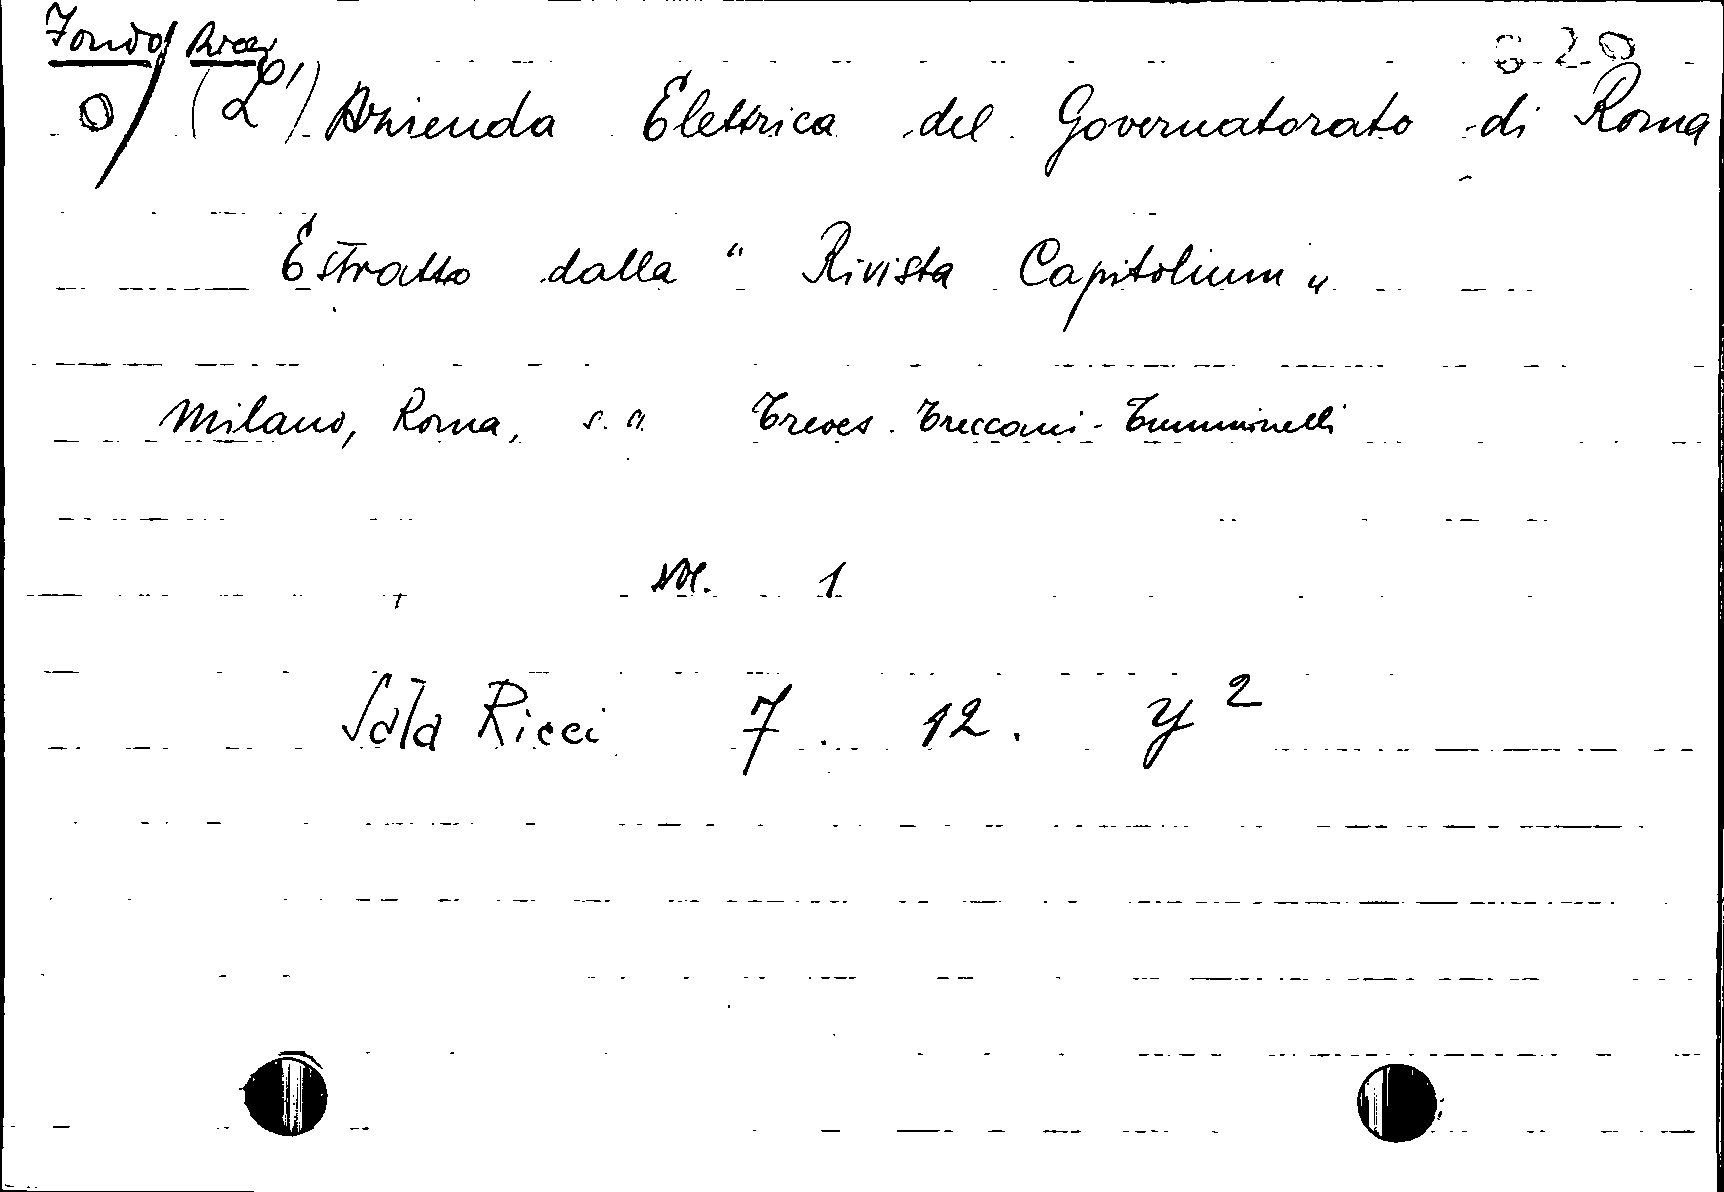 Fondo Ricci 620
O/ (L') Azienda Elettrica del Governatorato di Roma
Estratto dalla " Rivista Capitolium "
Milano, Roma, s. a. Treves. Treccani - Tumminelli
Vol. 1
Sala Ricci 7. 12. y²